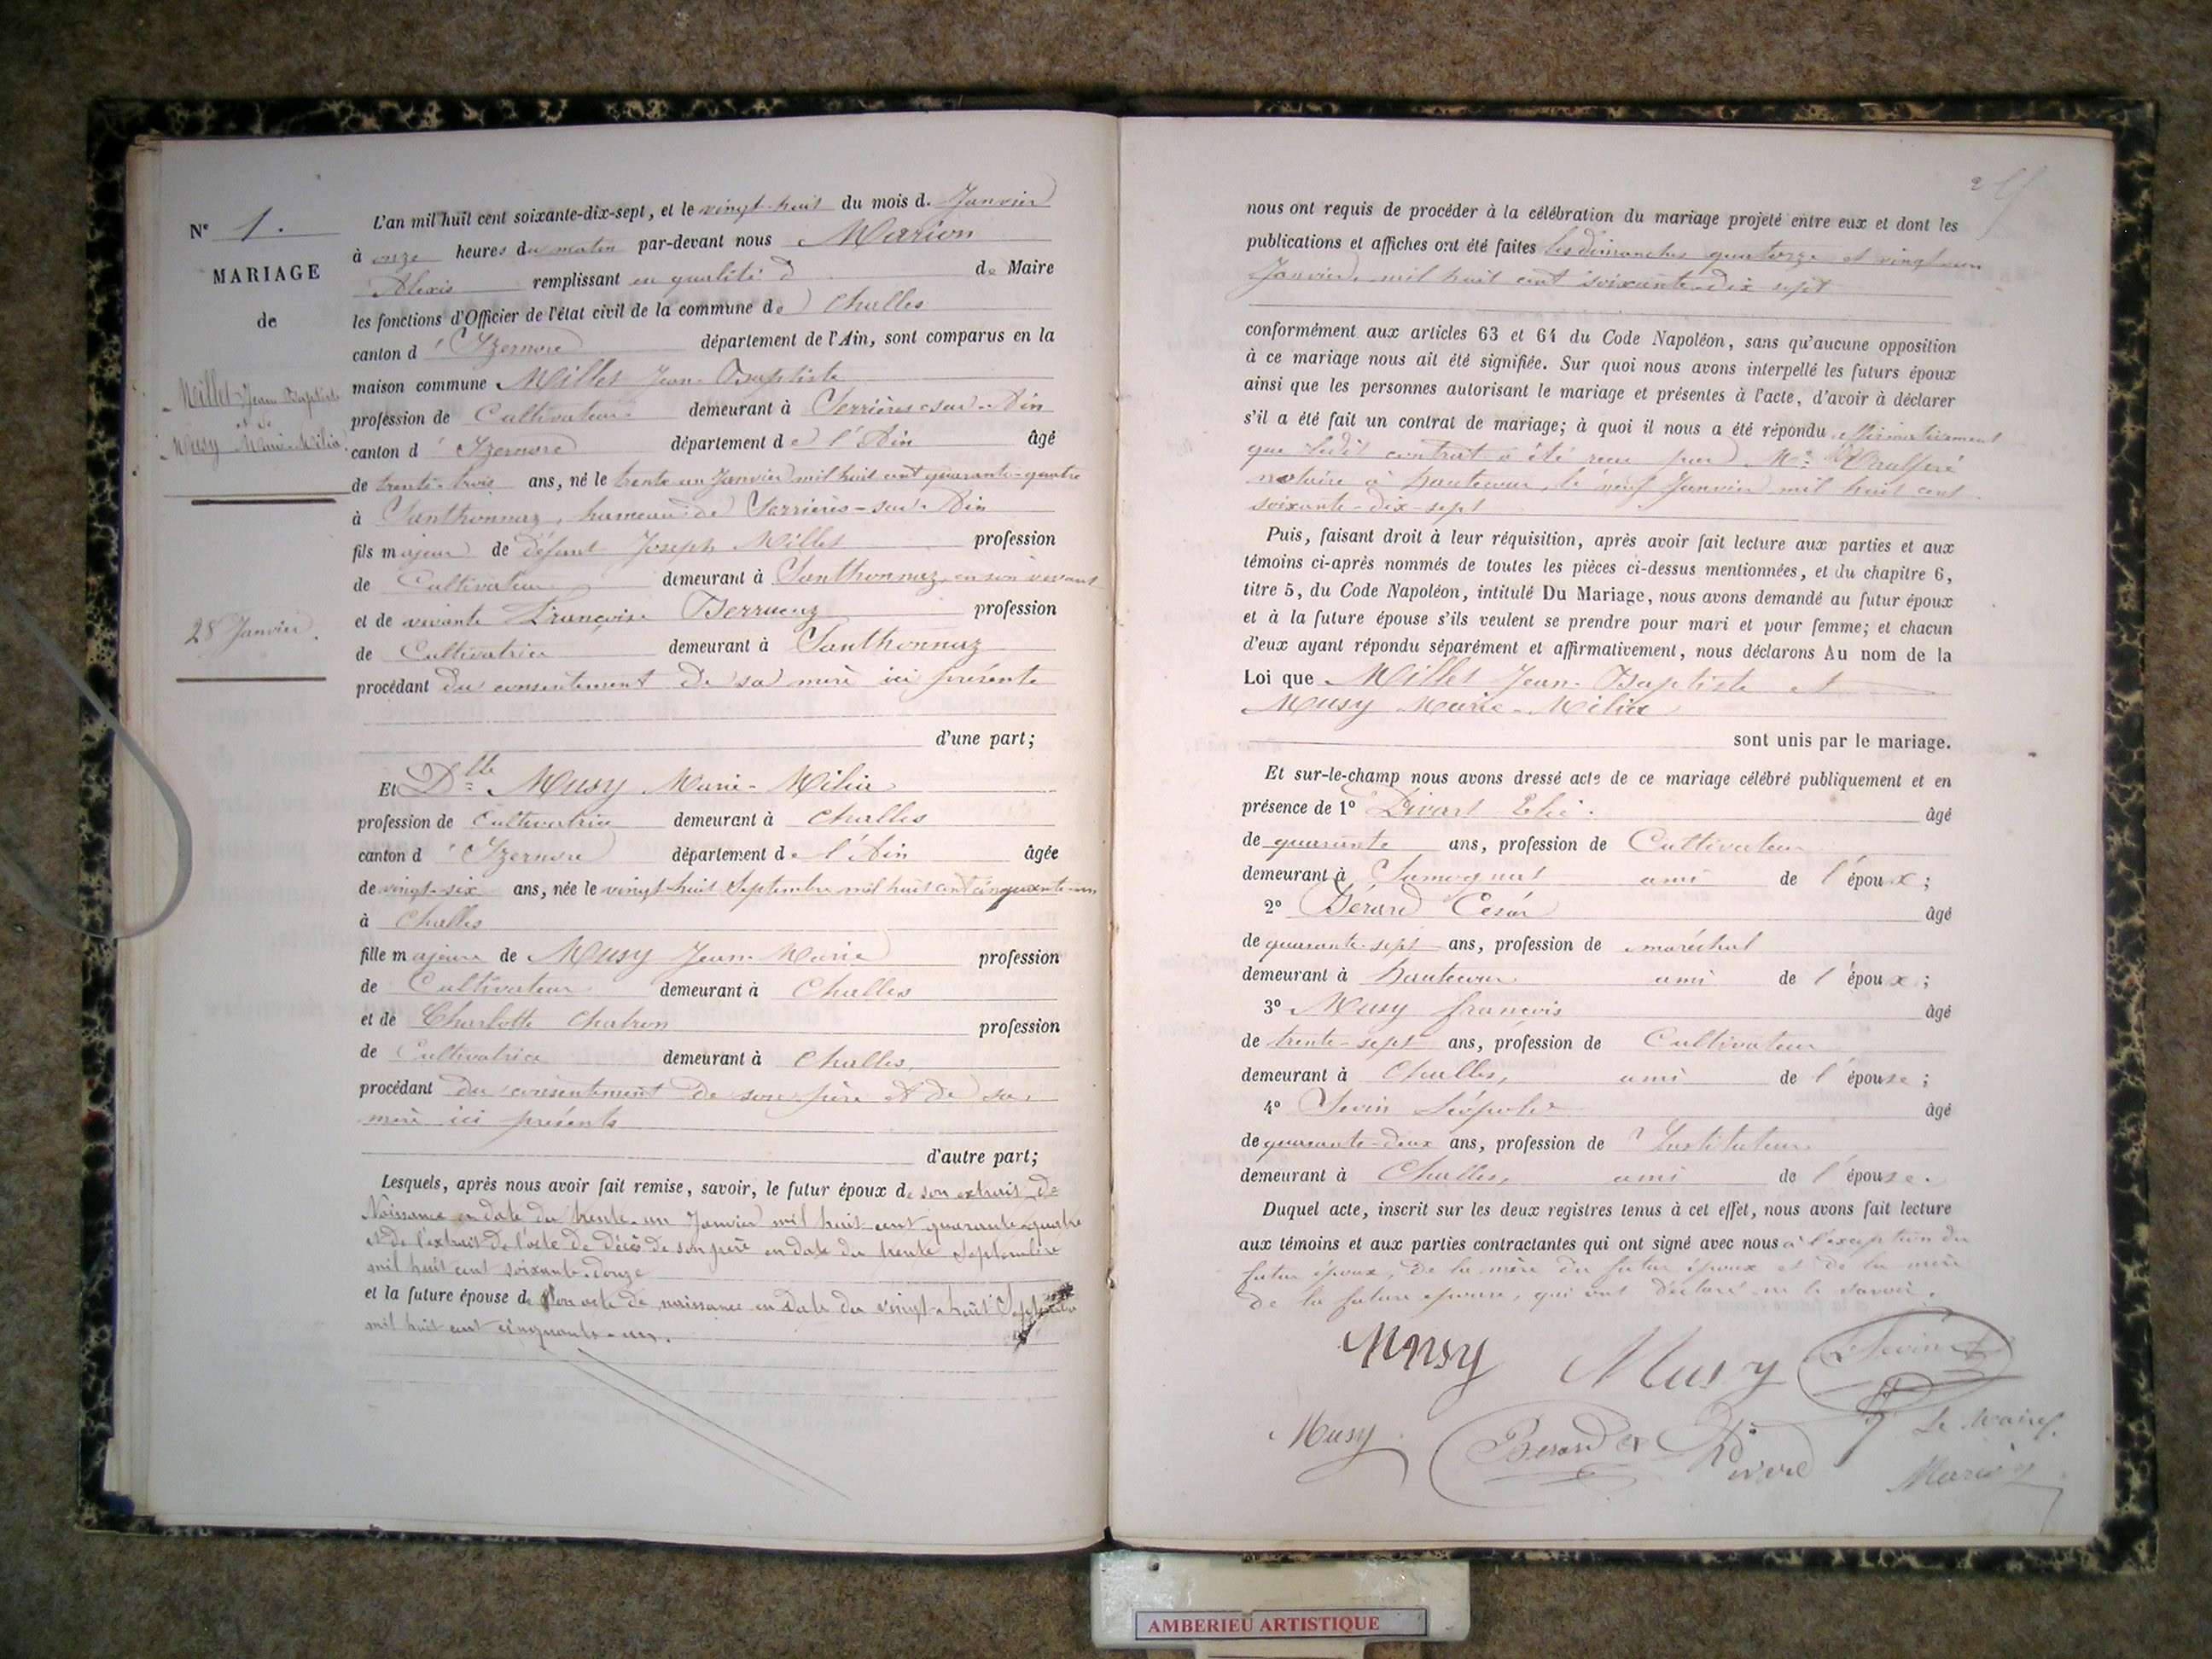 N° 1.
MARIAGE
de
Millet Jean Baptiste
et de
Musy Marie-Mélia.
28 Janvier.
L'an mil huit cent soixante-dix-sept, et le vingt-huit du mois d. Janvier
à onze heures du matin par-devant nous Marion
Alexis remplissant en qualité d de Maire
les fonctions d'Officier de l'état civil de la commune de Challes
canton d' Izernore département de l'Ain, sont comparus en la
maison commune Millet Jean-Baptiste
profession de Cultivateur demeurant à Serrières-sur-Ain
canton d' Izernore département de l'Ain âgé
de trente-trois ans, né le trente un Janvier mil huit cent quarante-quatre
à Santhonnaz, hameau de Serrières-sur-Ain
fils majeur de défunt Joseph Millet profession
de Cultivateur demeurant à Santhonnaz, en son vivant
et de vivante Françoise profession
de Cultivatrice demeurant à Santhonnaz
procédant du consentement de sa mère ici présente
d'une part;
Et Dlle Musy Marie-Mélia
profession de Cultivatrice demeurant à Challes
canton d' Izernore département de l'Ain âgée
de vingt-six ans, née le vingt-huit Septembre mil huit cent cinquante-un
à Challes
fille majeure de Musy Jean-Marie profession
de Cultivateur demeurant à Challes
et de Charlotte Chatron profession
de Cultivatrice demeurant à Challes,
procédant du consentement de son père et de sa
mère ici présents
d'autre part;
Lesquels, après nous avoir fait remise, savoir, le futur époux de son extrait de
Naissance en date du trente-un Janvier mil huit cent quarante-quatre
et de l'extrait de l'acte de décès de son père en date du trente Septembre
mil huit cent soixante-douze
et la future épouse de son acte de naissance en date du vingt-huit Septembre
mil huit cent cinquante-un.
nous ont requis de procéder à la célébration du mariage projeté entre eux et dont les
publications et affiches ont été faites les dimanches quatorze et vingt-un
Janvier, mil huit cent soixante-dix sept
conformément aux articles 63 et 64 du Code Napoléon, sans qu'aucune opposition
à ce mariage nous ait été signifiée. Sur quoi nous avons interpellé les futurs époux
ainsi que les personnes autorisant le mariage et présentes à l'acte, d'avoir à déclarer
s'il a été fait un contrat de mariage; à quoi il nous a été répondu affirmativement
que ledit contrat a été reçu par Me
notaire à hautecour, le neuf Janvier mil huit cent
soixante-dix-sept
Puis, faisant droit à leur réquisition, après avoir fait lecture aux parties et aux
témoins ci-après nommés de toutes les pièces ci-dessus mentionnées, et du chapitre 6,
titre 5, du Code Napoléon, intitulé Du Mariage, nous avons demandé au futur époux
et à la future épouse s'ils veulent se prendre pour mari et pour femme; et chacun
d'eux ayant répondu séparément et affirmativement, nous déclarons Au nom de la
Loi que Millet Jean-Baptiste et
Musy Marie-Mélia
sont unis par le mariage.
Et sur-le-champ nous avons dressé acte de ce mariage célébré publiquement et en
présence de 1° Elie. âgé
de quarante ans, profession de Cultivateur
demeurant à Samognat ami de l'époux;
2° Bérard César âgé
de quarante-sept ans, profession de maréchal
demeurant à hautecour ami de l'époux;
3° Musy françois âgé
de trente-sept ans, profession de Cultivateur
demeurant à Challes, ami de l'épouse;
4° Sevin Léopold âgé
de quarante-deux ans, profession d'Instituteur
demeurant à Challes, ami de l'épouse.
Duquel acte, inscrit sur les deux registres tenus à cet effet, nous avons fait lecture
aux témoins et aux parties contractantes qui ont signé avec nous à l'exception du
futur époux, de la mère du futur époux et de la mère
de la future épouse, qui ont déclaré ne le savoir.
Musy Musy Sevin
Musy Berard Le Maire,
Marion
AMBERIEU ARTISTIQUE